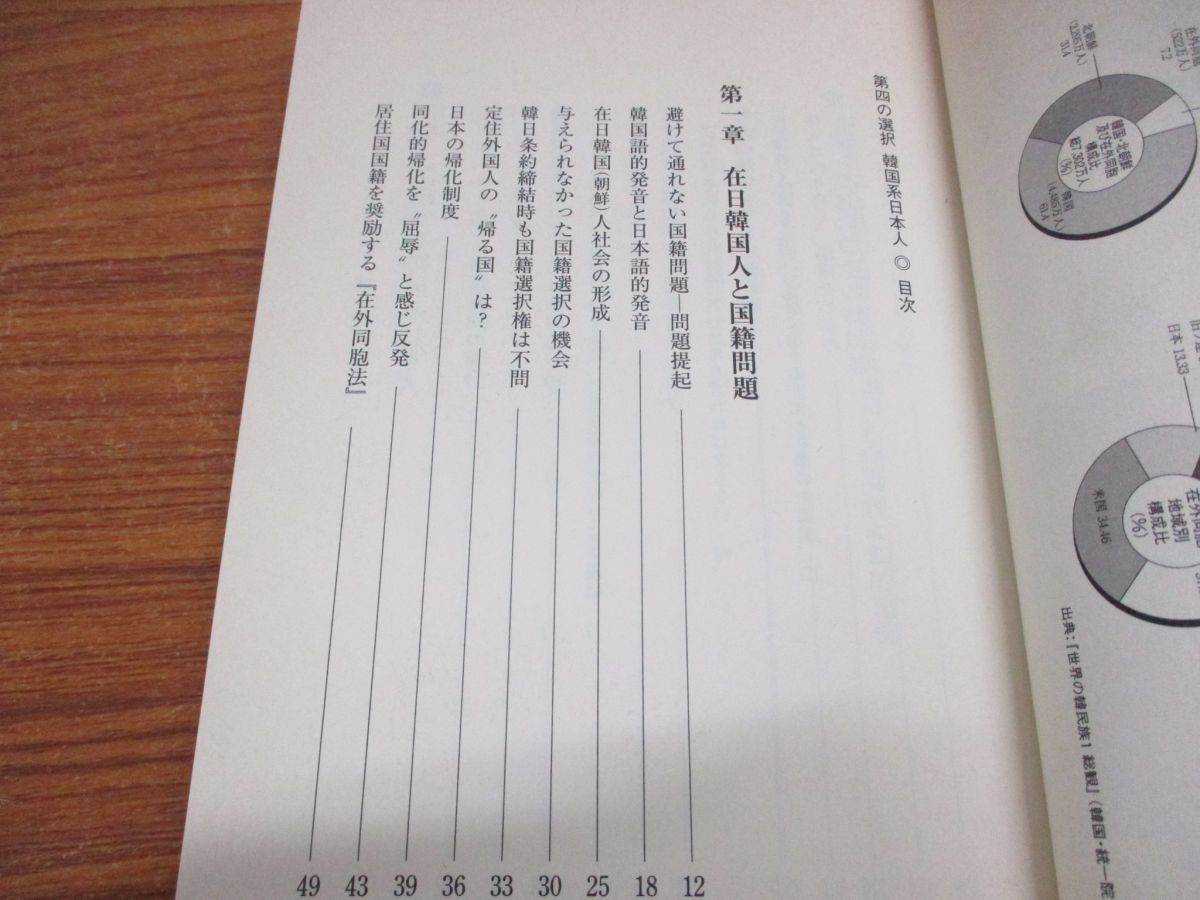 北朝鮮
(2,295万人)
31.4
在外同胞
(522万人)
7.2
韓国・北朝鮮
及び在外同胞
構成比
総7,302万人
(%)
韓国
(4,485万人)
61.4
日本 13.33
米国 34.46
地域別
構成比
(%)
出典:『世界の韓民族1 総観』(韓国・統一院
第四の選択 韓国系日本人 ◎ 目次
第一章 在日韓国人と国籍問題
避けて通れない国籍問題―問題提起 12
韓国語的発音と日本語的発音 18
在日韓国(朝鮮)人社会の形成 25
与えられなかった国籍選択の機会 30
韓日条約締結時も国籍選択権は不問 33
定住外国人の〝帰る国〟は? 36
日本の帰化制度 39
同化的帰化を〝屈辱〟と感じ反発 43
居住国国籍を奨励する『在外同胞法』 49